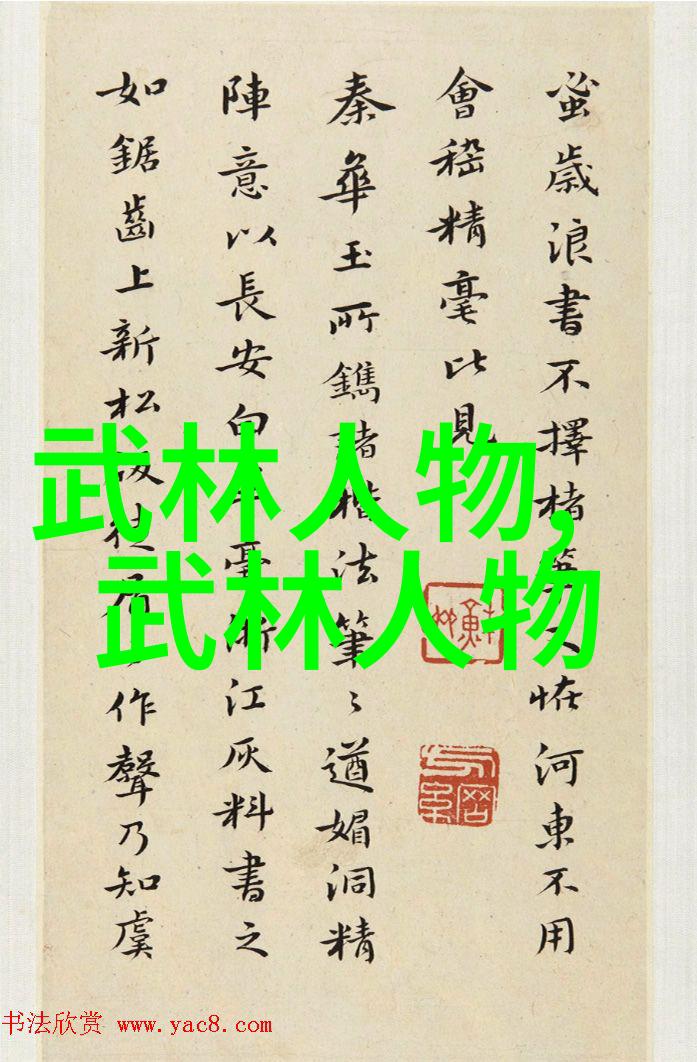 武林人物,
武林人物
蚤歲浪書不擇楮筆又恠河東不用
會稽精毫比見
秦華玉所鐫諸楷法筆〻遒媚洞精
陣意以長安向毫浙江灰料書之
如鋸齒上新松板作聲乃知虞
书法欣赏 www.yac8.com